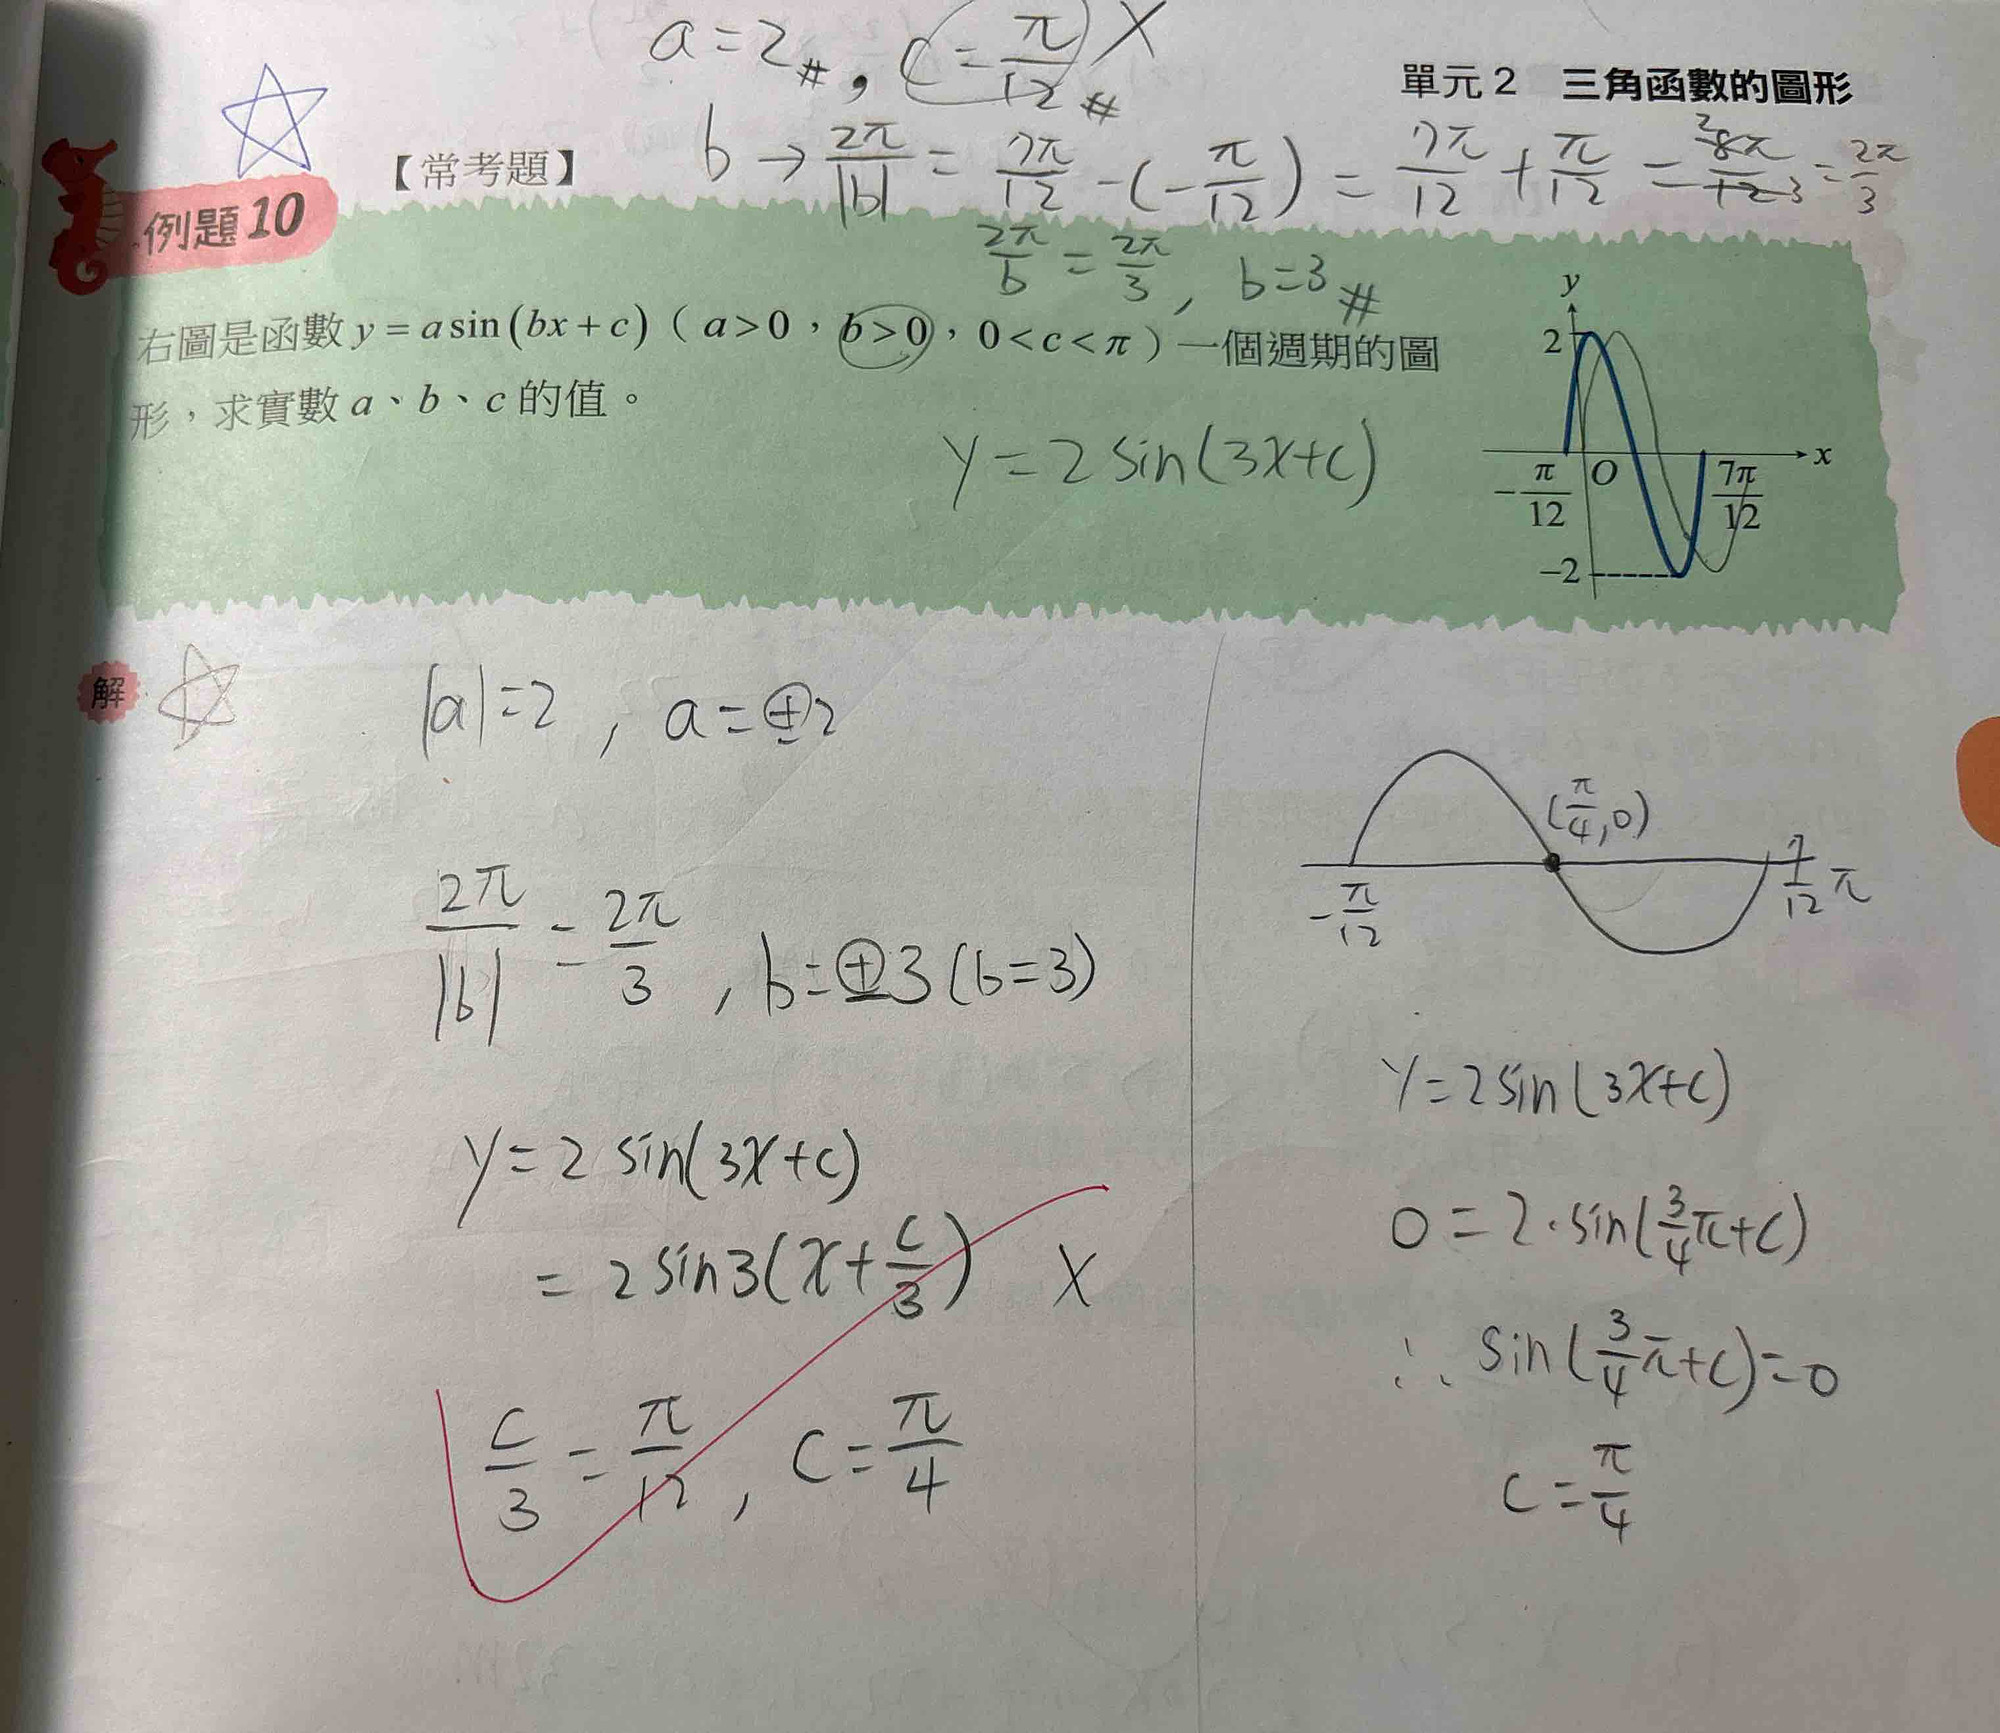 a=2#, c=π/12# X
單元2 三角函數的圖形
【常考題】
b→2π/|b|=7π/12-(-π/12)=7π/12+π/12=8π/12=2π/3
例題10
2π/b=2π/3, b=3#
右圖是函數 y=a sin(bx+c)(a>0,b>0,0<c<π)一個週期的圖
形,求實數 a、b、c 的值。
y=2sin(3x+c)
y
2
-π/12
O
7π/12
x
-2
解
|a|=2, a=±2
2π/|b|=2π/3, b=±3(b=3)
y=2sin(3x+c)
=2sin3(x+c/3) X
c/3=π/12, c=π/4
(π/4,0)
-π/12
7/12π
y=2sin(3x+c)
0=2·sin(3/4π+c)
∴sin(3/4π+c)=0
c=π/4